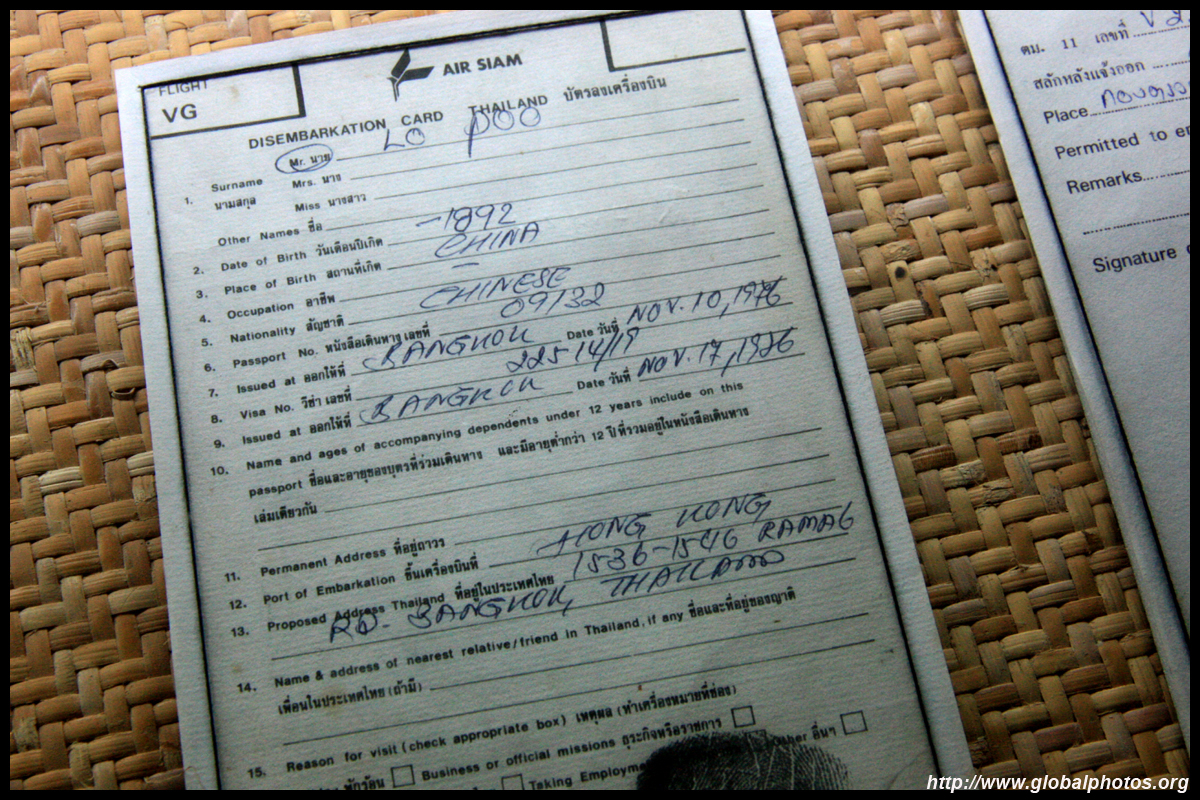 FLIGHT
VG
AIR SIAM
DISEMBARKATION CARD THAILAND บัตรลงเครื่องบิน
1. Surname นามสกุล
Mr. นาย LO POO
Mrs. นาง
Miss นางสาว
Other Names ชื่อ
2. Date of Birth วันเดือนปีเกิด -1892
3. Place of Birth สถานที่เกิด CHINA
4. Occupation อาชีพ –
5. Nationality สัญชาติ CHINESE
6. Passport No. หนังสือเดินทางเลขที่ 09132
7. Issued at ออกให้ที่ BANGKOK Date วันที่ NOV. 10, 1976
8. Visa No. วีซ่า เลขที่ 22514/19
9. Issued at ออกให้ที่ BANGKOK Date วันที่ NOV. 17, 1976
10. Name and ages of accompanying dependents under 12 years include on this
passport ชื่อและอายุของบุตรที่ร่วมเดินทาง และมีอายุต่ำกว่า 12 ปีที่รวมอยู่ในหนังสือเดินทาง
เล่มเดียวกัน
11. Permanent Address ที่อยู่ถาวร
12. Port of Embarkation ขึ้นเครื่องบินที่ HONG KONG
13. Proposed Address Thailand ที่อยู่ในประเทศไทย 1536-1546 RAMA6
RD. BANGKOK, THAILAND
14. Name & address of nearest relative/friend in Thailand, if any ชื่อและที่อยู่ของญาติ
เพื่อนในประเทศไทย (ถ้ามี)
15. Reason for visit (check appropriate box) เหตุผล (ทำเครื่องหมายที่ช่อง)
พักผ่อน Business or official missions ธุระกิจหรือราชการ Other อื่นๆ
Taking Employme
ตม. 11 เลขที่
สลักหลังแจ้งออก
Place
Permitted to en
Remarks
Signature o
http://www.globalphotos.org